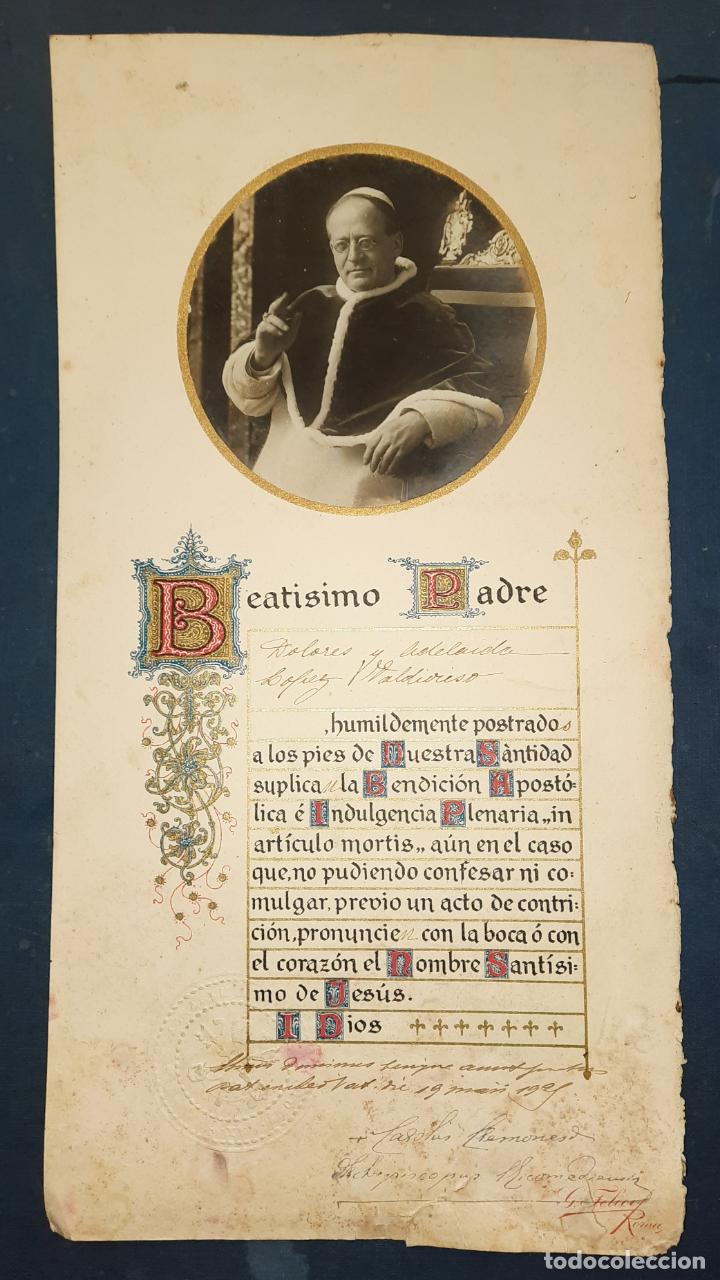 Beatisimo Padre
Dolores y Adelaida
Lopez Valdivieso
,humildemente postrados
a los pies de Nuestra Sàntidad
suplican la Bendición Apostó-
lica é Indulgencia Plenaria „in
artículo mortis„ aún en el caso
que, no pudiendo confesar ni co-
mulgar, previo un acto de contri-
ción, pronuncien con la boca ó con
el corazón el Nombre Santísi-
mo de Jesús.
I Dios
die 19
Carolus Cremonesi
Archiepiscopus Nicomediensis
Roma
todocoleccion